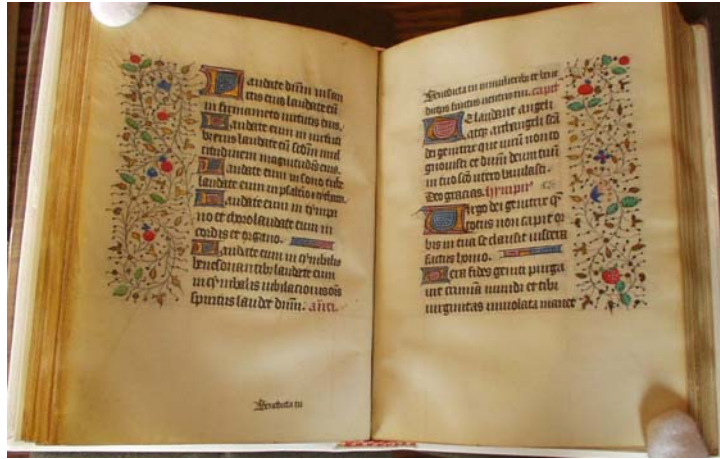 Laudate dnm in san
ctis eius laudate eu
in firmamento virtutis eius.
Laudate eum in virtuti
bus eius laudate eu sedm mul
titudinem magnitudis eius.
Laudate eum in sono tube
laudate eum in psalterio
Laudate eum in tympa
no et choro laudate eum in
cordis et organo.
Laudate eum in cymbalis
benesonantib laudate eum
in cymbalis iubilacionis ois
spiritus laudet dnm. ant.
Benedicta tu
Benedicta tu in mulieribz et bene
dictus fructus ventris tui. capit
Te laudant angeli
atqz archangeli sca
dei genitrix que virum non co
gnouisti et dnm deum tuu
in tuo sco utero baiulasti.
Deo gracias. hympn
Virgo dei genitrix q
totus non capit or
bis in tua se clausit viscera
factus homo.
Vera fides geniti purga
uit crimina mundi et tibi
virginitas inuiolata manet